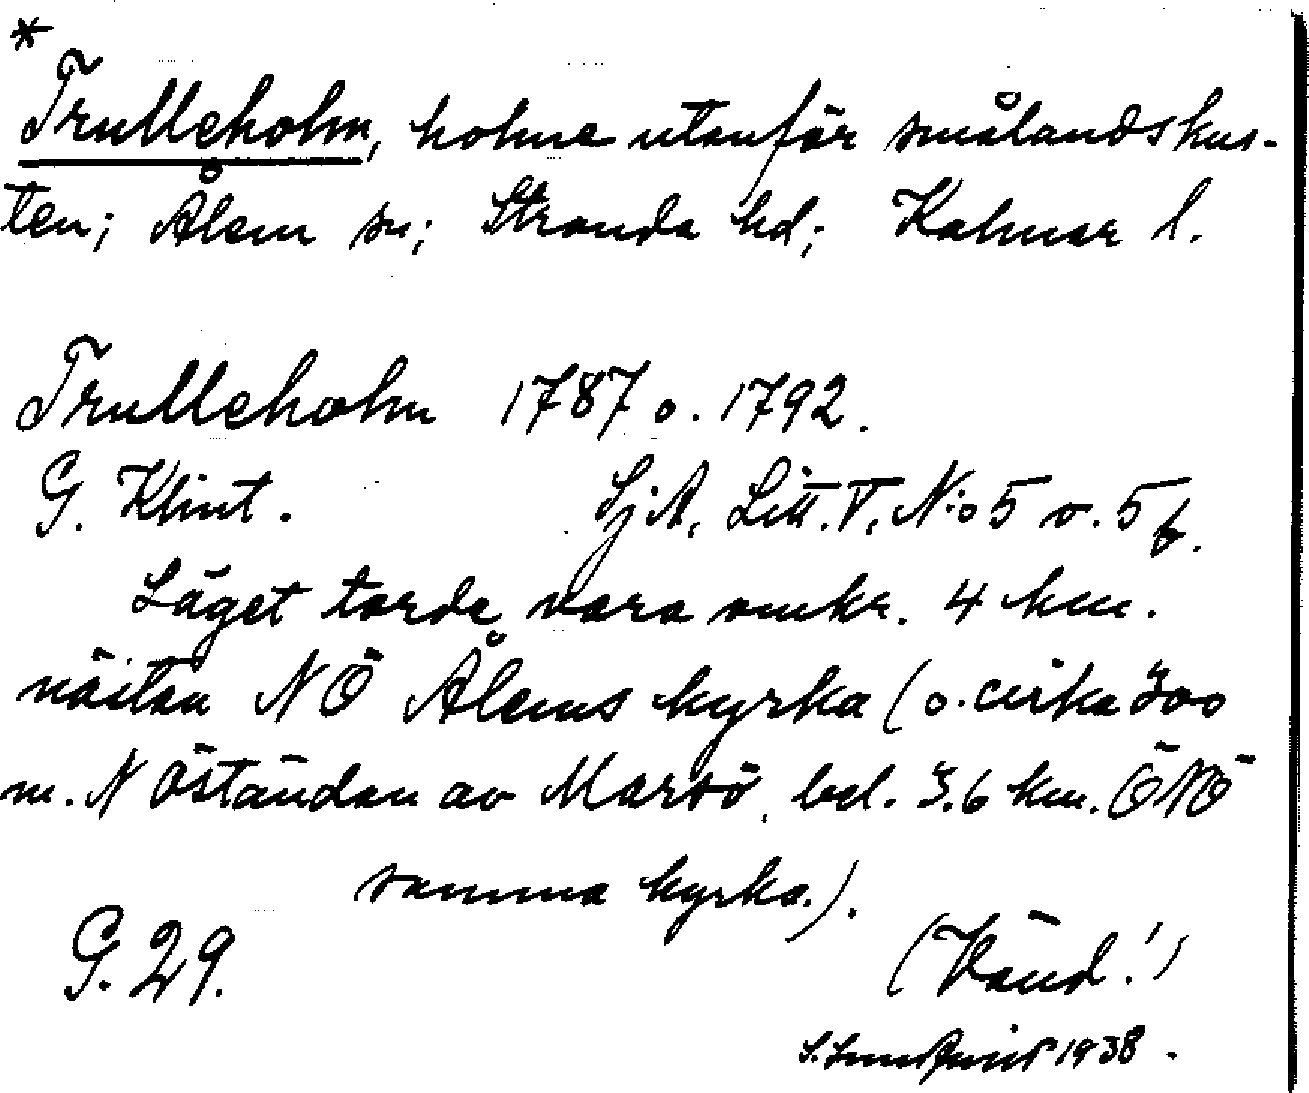 *
Trulleholm, holme utanför smålandskus-
ten; Ålem sn; Stranda hd; Kalmar l.
Trulleholm 1787 o. 1792.
G. Klint. SjA, Litt. V, N:o 5 o. 5 b.
Läget torde vara omkr. 4 km.
nästan NÖ Ålems kyrka (o. cirka 300
m. N öständan av Marsö, bel. 3.6 km. ÖNÖ
samma kyrka.).
G. 29. (Vänd!)
1938.